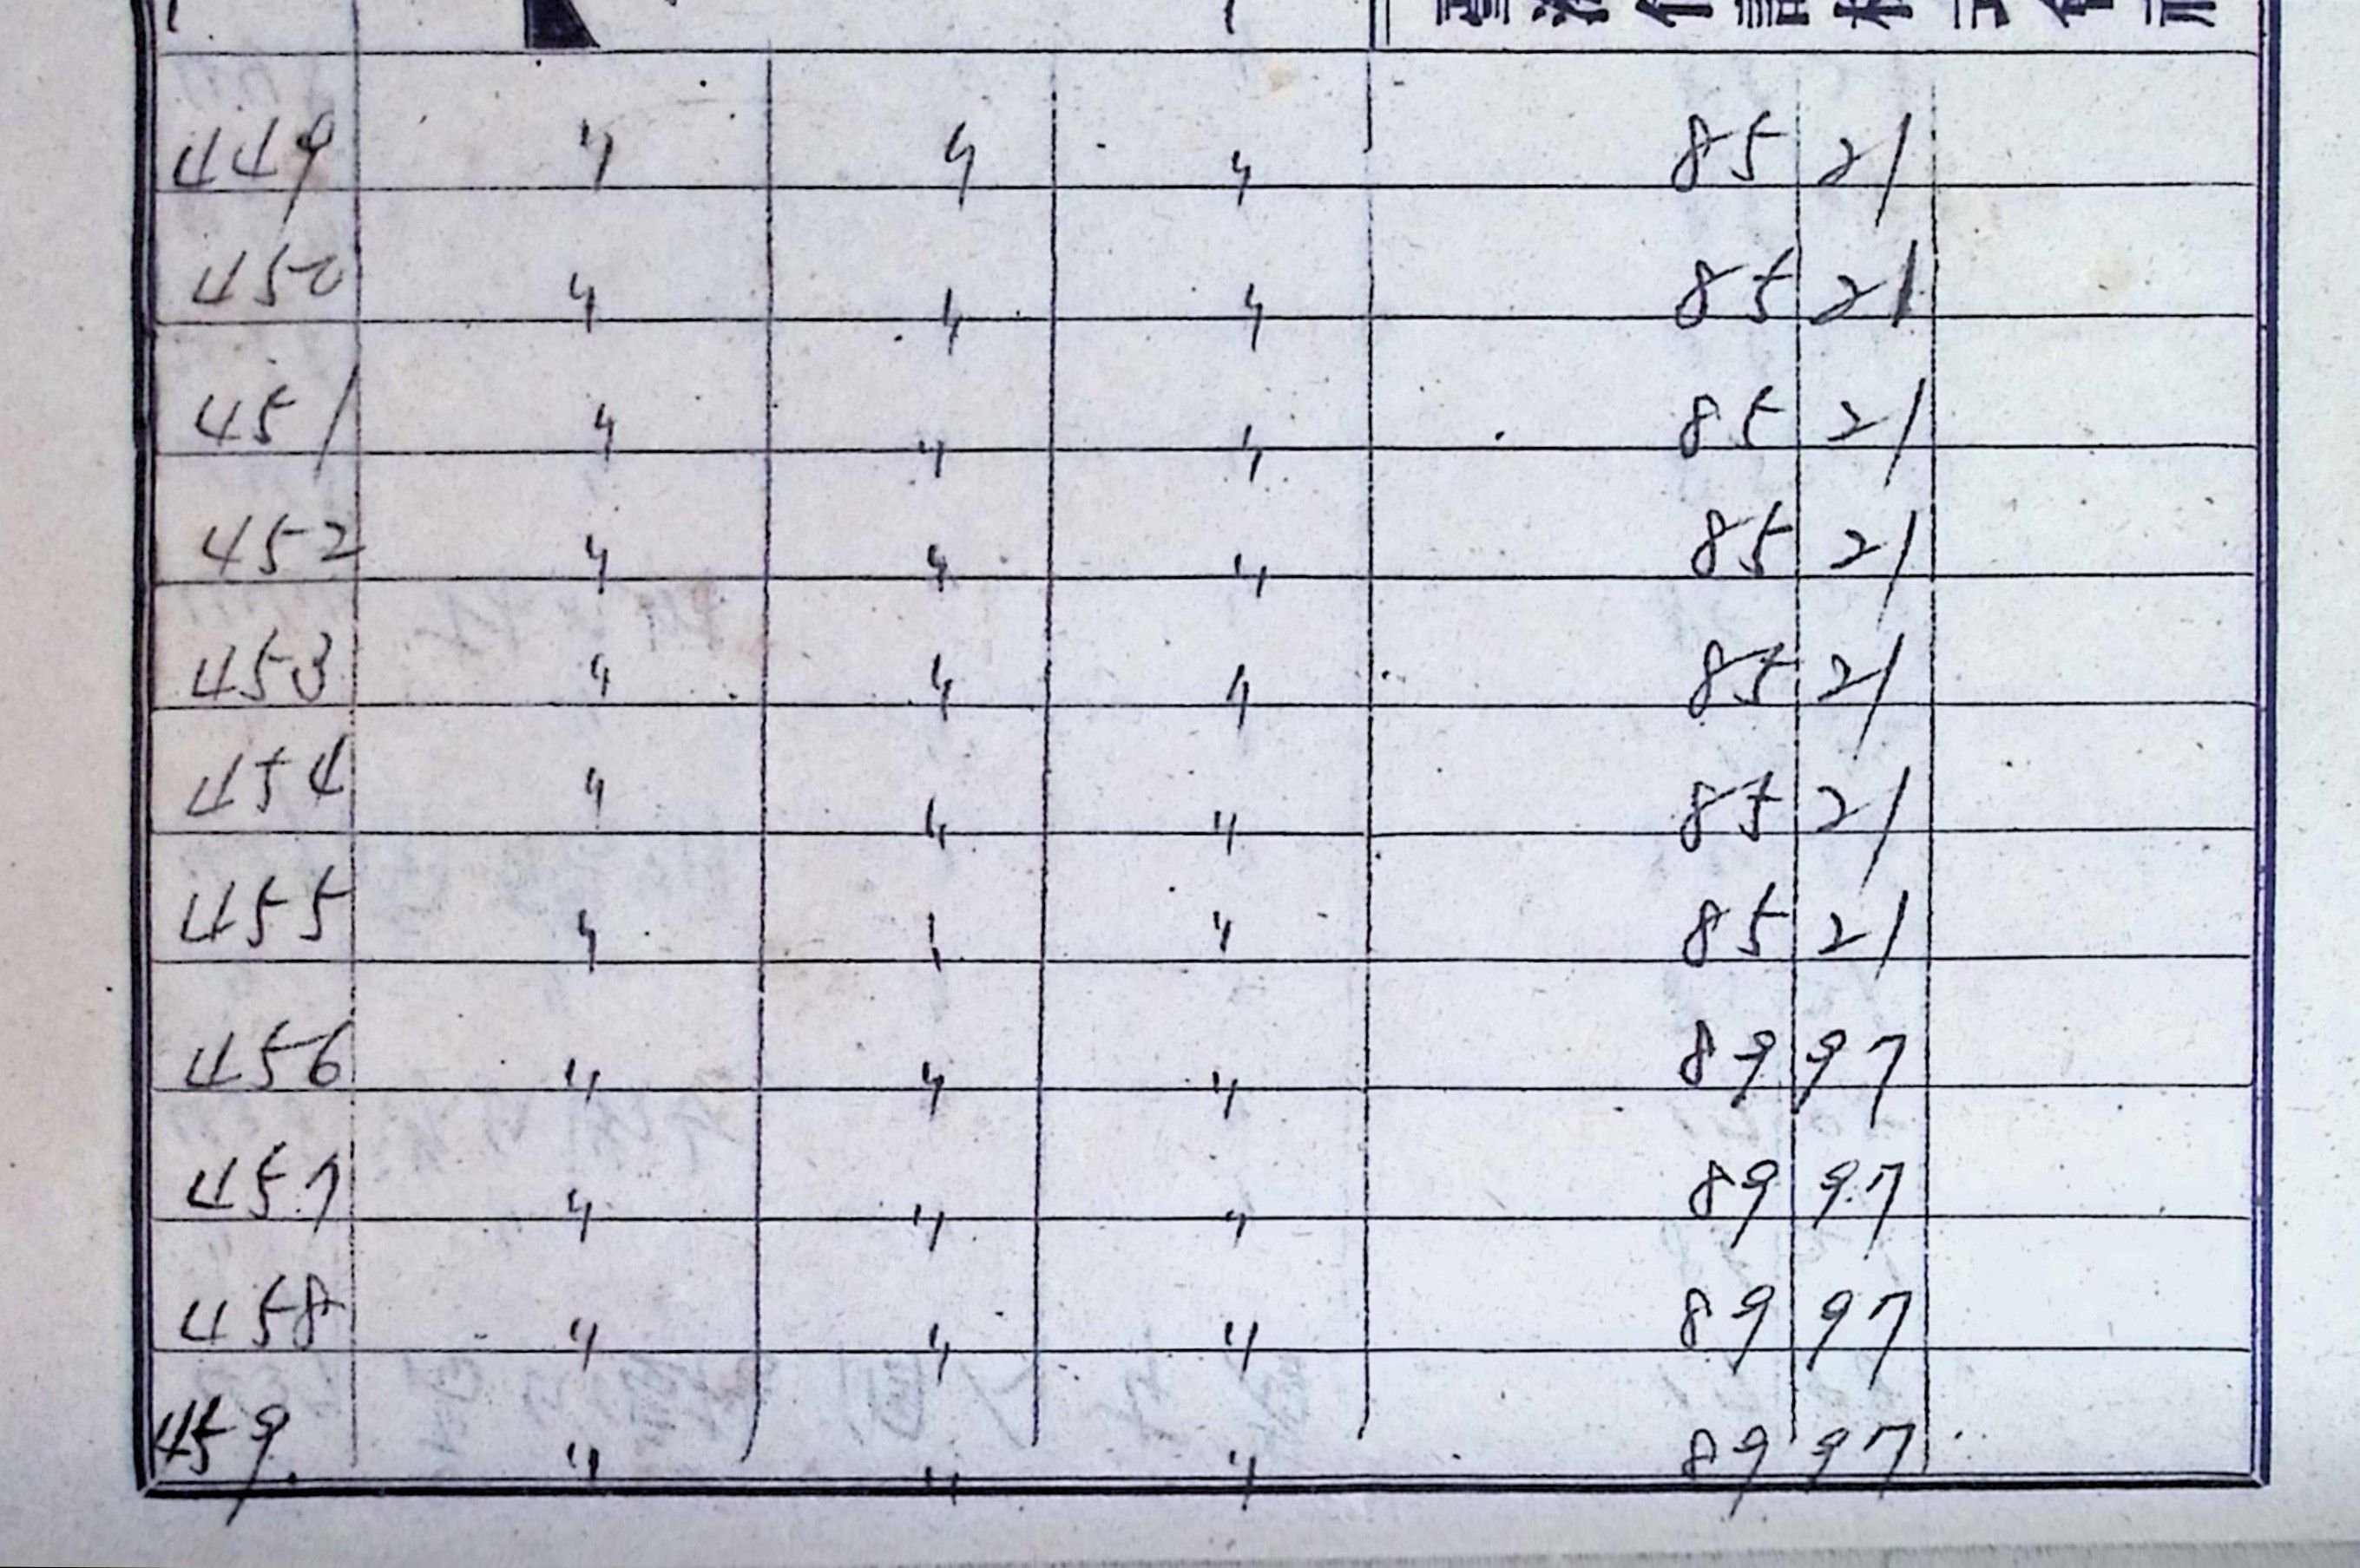 449 〃 〃 〃 85 21
450 〃 〃 〃 85 21
451 〃 〃 〃 85 21
452 〃 〃 〃 85 21
453 〃 〃 〃 85 21
454 〃 〃 〃 85 21
455 〃 〃 〃 85 21
456 〃 〃 〃 89 97
457 〃 〃 〃 89 97
458 〃 〃 〃 89 97
459 〃 〃 〃 89 97